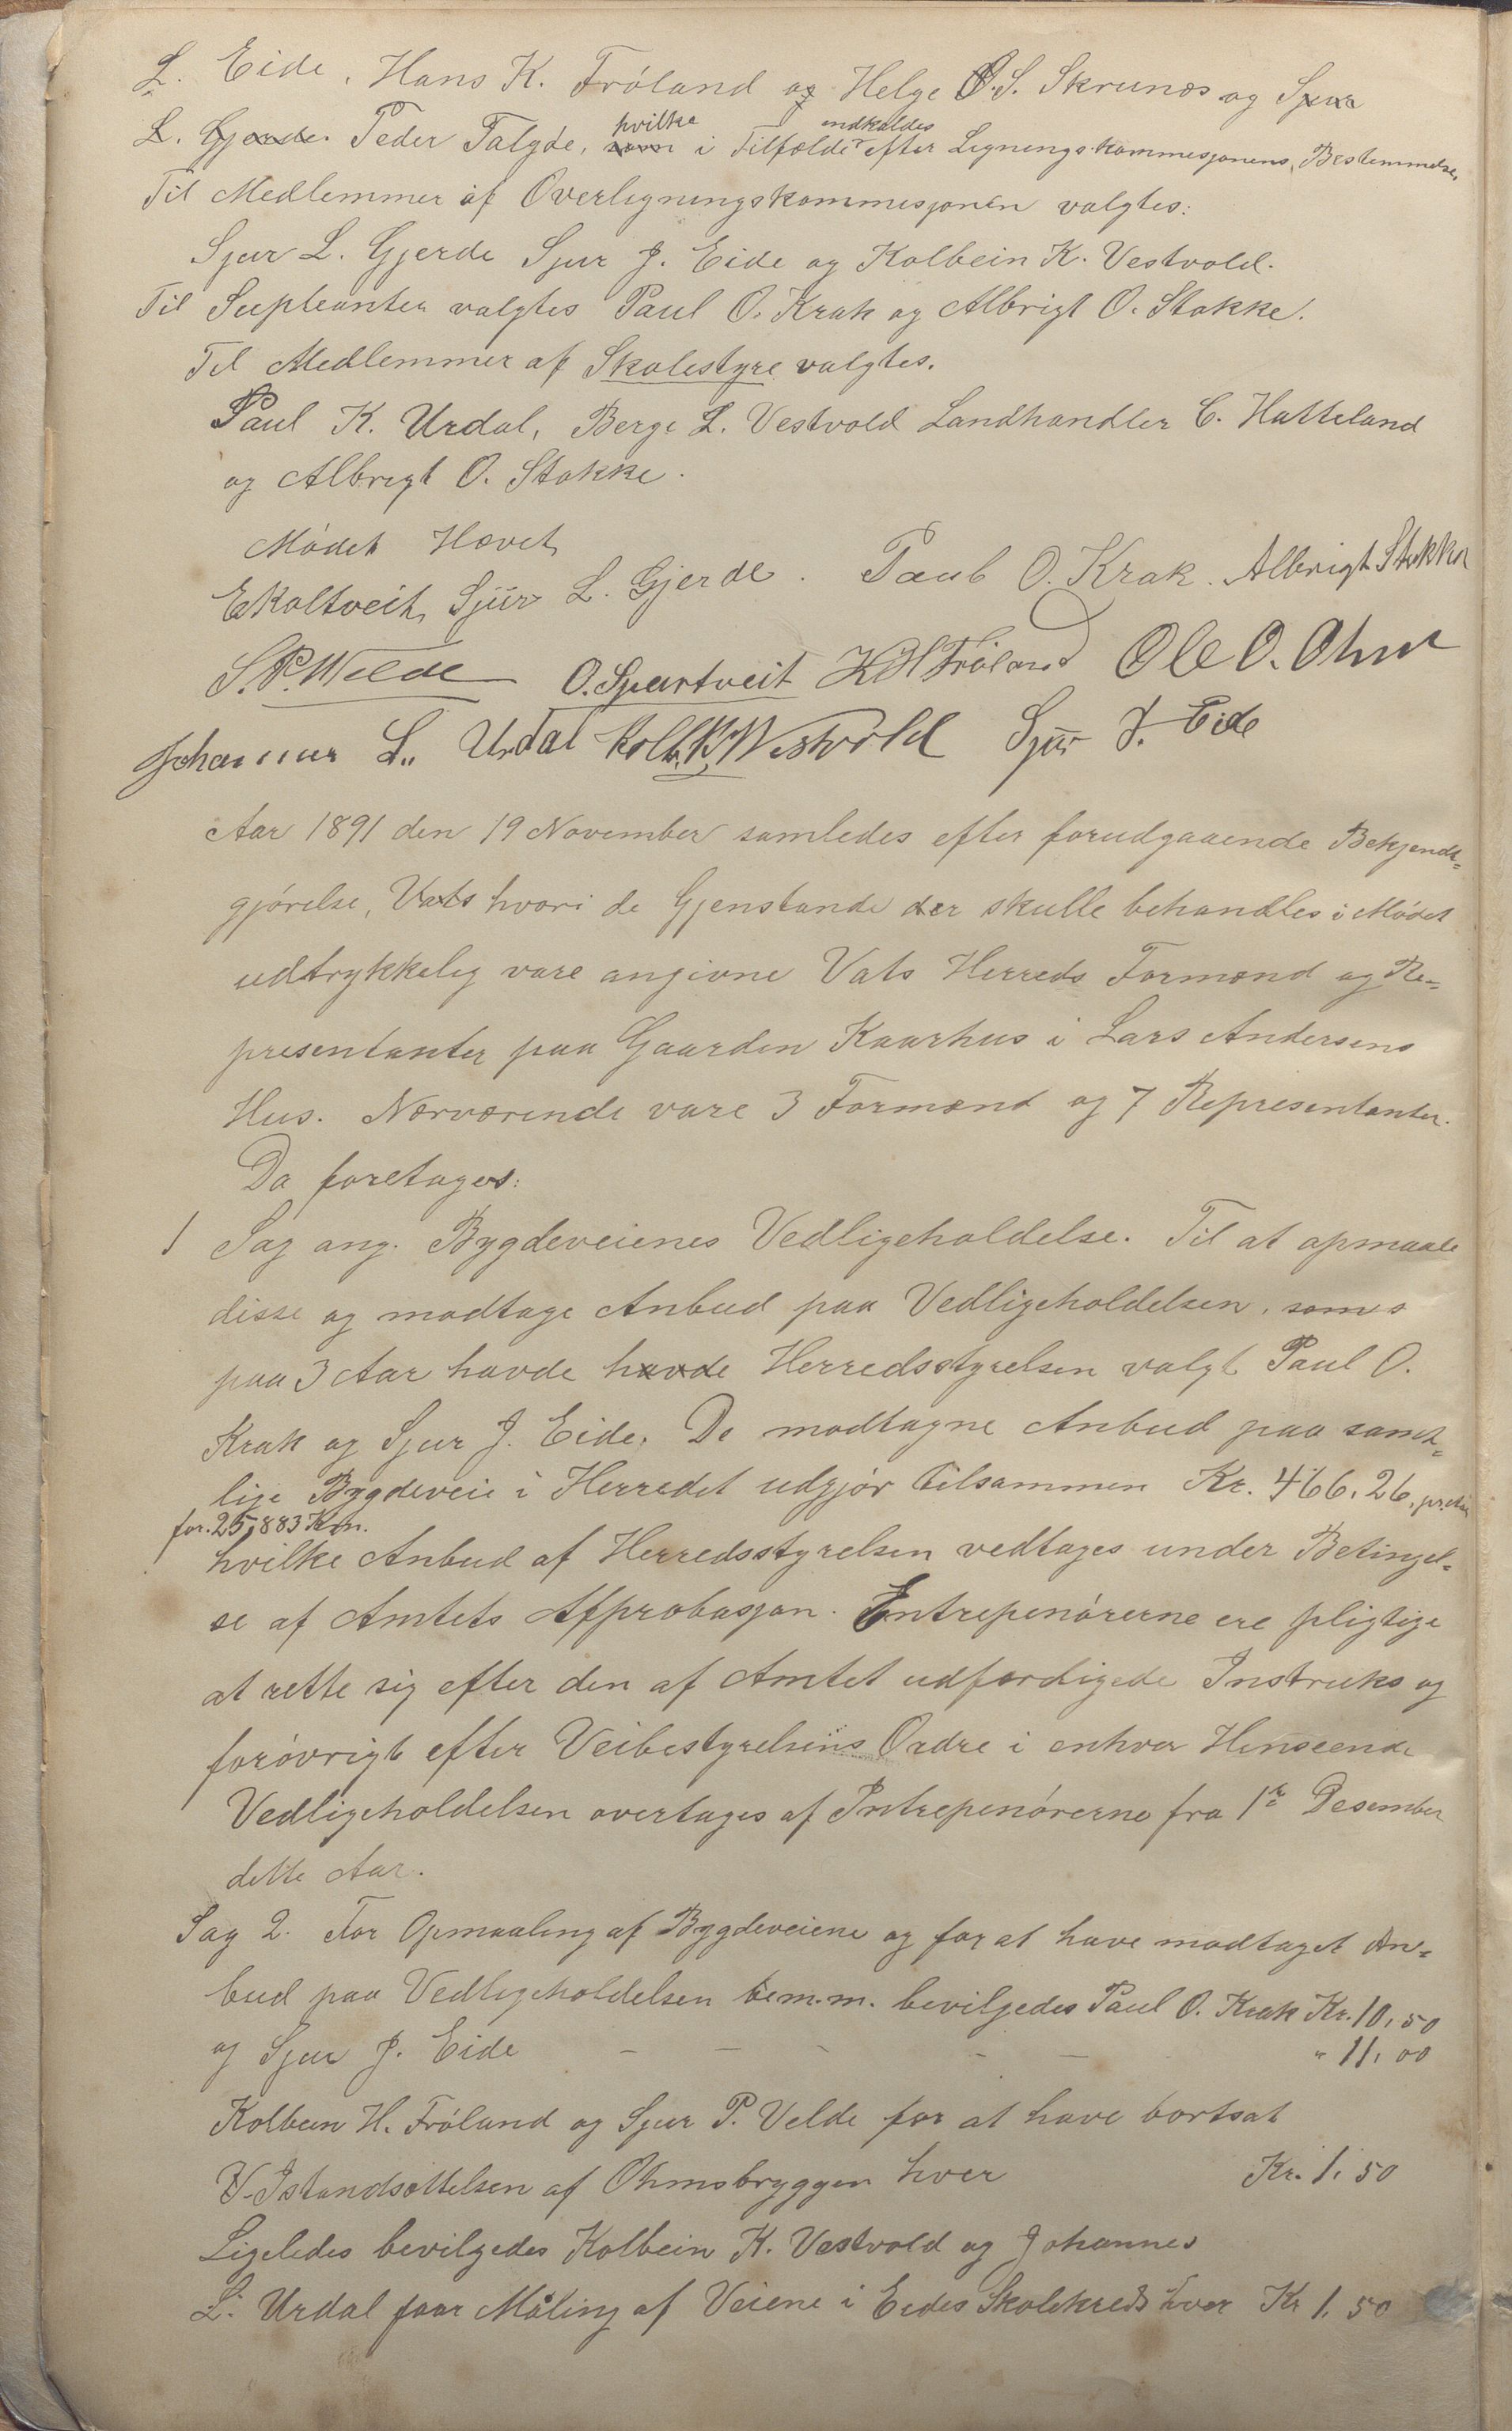 L. Eide, Hans K. Fröland og Helge O.S. Skrunes og Sjur
L. Gjerde. Peder Talgde, som hvilke i Tilfælde indkaldes efter Ligningskommisjonens Bestemmelse,
Til Medlemmer af Overligningskommisjonen valgtes:
Sjur L. Gjerde Sjur J. Eide og Kolbein K. Vestvold.
Til Supleanter valgtes Paul O. Krak og Albrigt O. Stokke.
Til Medlemmer af Skolestyre valgtes.
Paul K. Urdal, Berge L. Vestvold Landhandler C. Hatteland
og Albrigt O. Stokke.
Mödet Hævet
EKoltveit, Sjur L. Gjerde. Paul O. Krak. Albrigt Stokke
S.P. Welde O. Spartveit KHFröland Ole O. Ohm
Johannes L. Urdal Kolb. K. Westvold Sjur J. Eide
Aar 1891 den 19 November samledes efter forudgaaende Bekjendt=
gjörelse, Vats hvori de Gjenstande der skulle behandles i Mödet
udtrykkelig vare angivne Vats Herreds Formænd og Re=
presentanter paa Gaarden Kaarhus i Lars Andersens
Hus. Nærværende vare 3 Formænd og 7 Representanter.
Da foretages:
1 Sag ang. Bygdeveienes Vedligeholdelse. Til at opmaale
disse og modtage Anbud paa Vedligeholdelsen, som s
paa 3 Aar havde havde Herredsstyrelsen valgt Paul O.
Krak og Sjur J. Eide. De modtagne Anbud paa samt=
lige Bygdeveie i Herredet udgjör tilsammen Kr. 466,26, pr. Aar
for. 25,883 Km.
hvilke Anbud af Herredsstyrelsen vedtages under Betingel=
se af Amtets Approbasjon. Entrepenörerne ere pligtige
at rette sig efter den af Amtet udfærdigede Instruks og
forövrigt efter Veibestyrelsens Ordre i enhver Henseende
Vedligeholdelsen overtages af Intrepenörerne fra 1ste Desember
dette Aar.
Sag 2. For Opmaaling af Bygdeveiene og for at have modtaget An=
bud paa Vedligeholdelsen tem.m. bevilgedes Paul O. Krak Kr. 10,50
og Sjur J. Eide - - - - - " 11,00
Kolbein H. Fröland og Sjur P. Velde for at have bortsat
V. Istandsættelsen af Ohmsbryggen hver Kr. 1,50
Ligeledes bevilgedes Kolbein K. Vestvold og Johannes
L. Urdal faar Måling af Veiene i Eides Skolekreds hver Kr 1,50